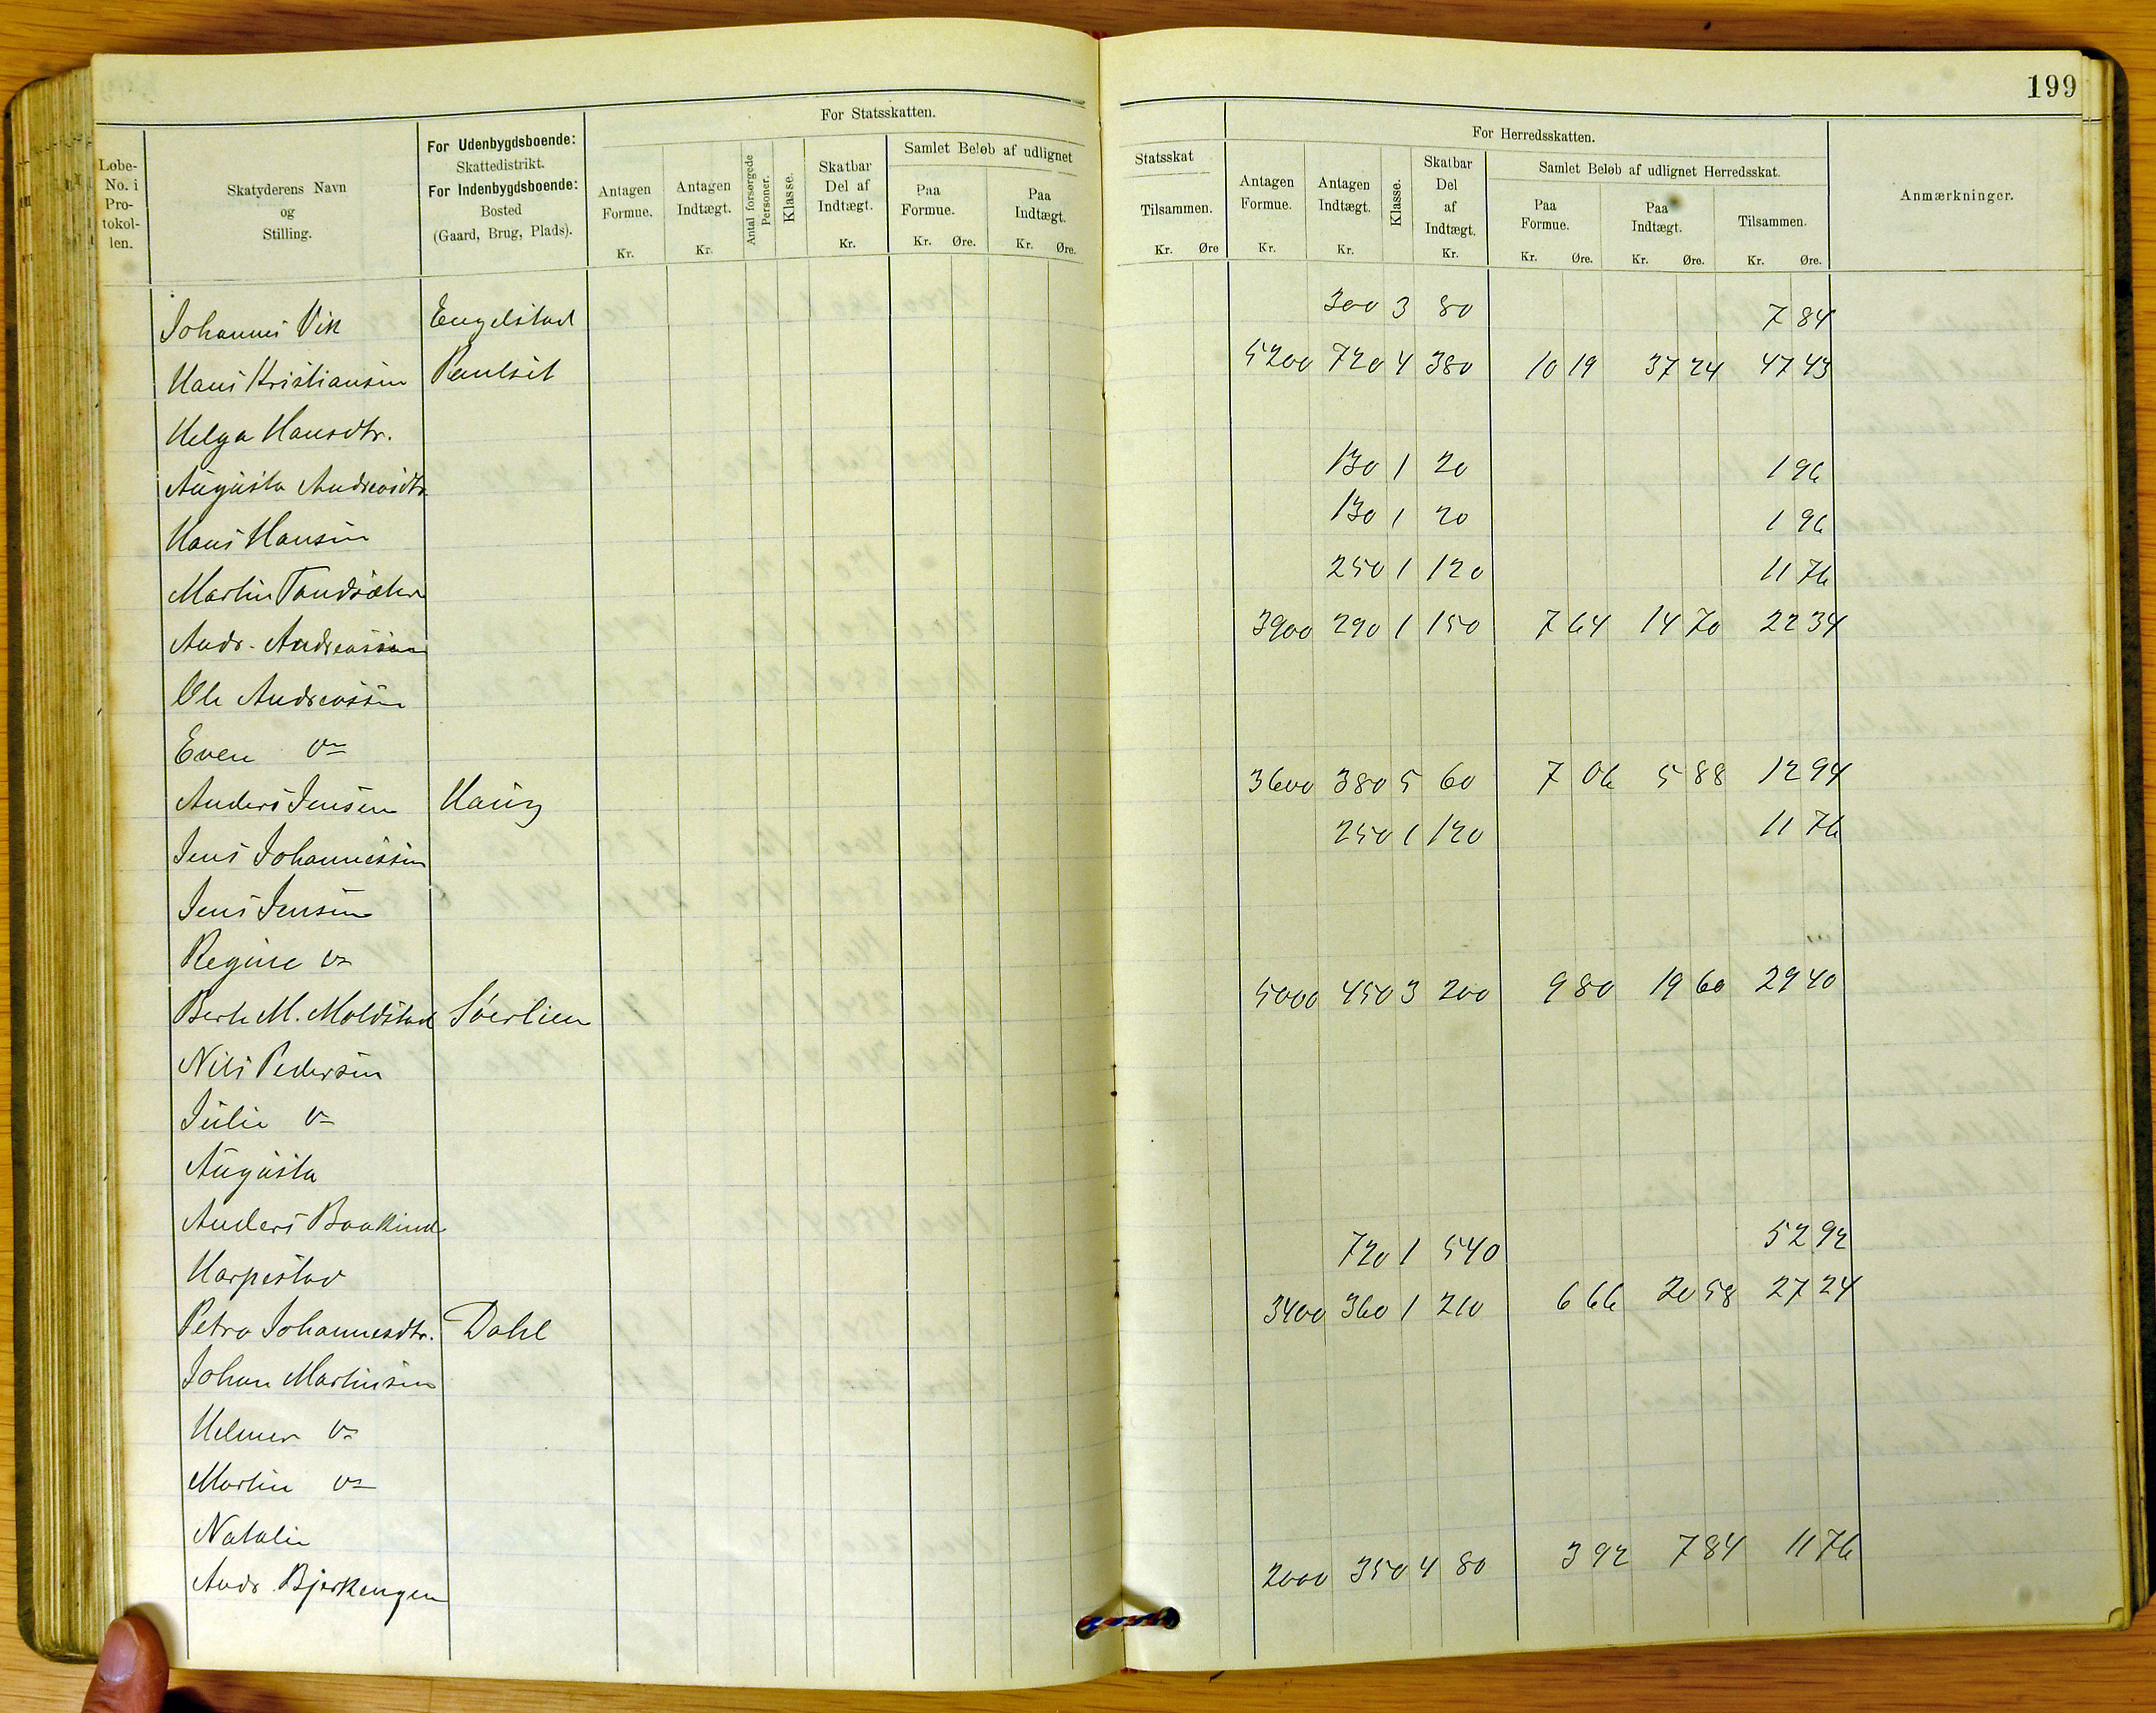 199
Løbe-No. i Pro-tokol-len.
Skatyderens Navn og Stilling.
For Udenbygdsboende: Skattedistrikt. For Indenbygdsboende: Bosted (Gaard, Brug, Plads).
For Statsskatten.
Antagen Formue. Kr.
Antagen Indtægt. Kr.
Antal forsørgede Personer.
Klasse.
Skatbar Del af Indtægt. Kr.
Samlet Beløb af udlignet
Paa Formue. Kr. Øre.
Paa Indtægt. Kr. Øre.
Statsskat
Tilsammen. Kr. Øre
For Herredsskatten.
Antagen Formue. Kr.
Antagen Indtægt. Kr.
Klasse.
Skatbar Del af Indtægt. Kr.
Samlet Beløb af udlignet Herredsskat.
Paa Formue. Kr. Øre.
Paa Indtægt. Kr. Øre.
Tilsammen. Kr. Øre.
Anmærkninger.
Johannes Vik Engelstad 300 3 80 7 84
Hans Kristiansen 5200 720 4 380 10 19 37 24 47 43
Helga Hansdtr.
Augusta Andreasdtr 130 1 20 1 96
Hans Hansen 130 1 20 1 96
Martin 250 1 120 11 76
Andr. Andreassen 3900 290 1 150 7 64 14 70 22 34
Ole Andreassen
Even
Anders Jensen Haug 3600 380 5 60 7 06 5 88 12 94
Jens Johannessen 250 1 120 11 76
Jens Jensen
Regine
Berte M. Moldstad Sørlien 5000 450 3 200 9 80 19 60 29 40
Nils Pedersen
Julie
Augusta
Anders
Harpestad 720 1 540 52 92
Petra Johannesdtr. Dahl 3400 360 1 210 6 66 20 58 27 24
Johan Martinsen
Helmer
Martin
Natalie
Andr. Bjerkengen 2000 350 4 80 3 92 7 84 11 76